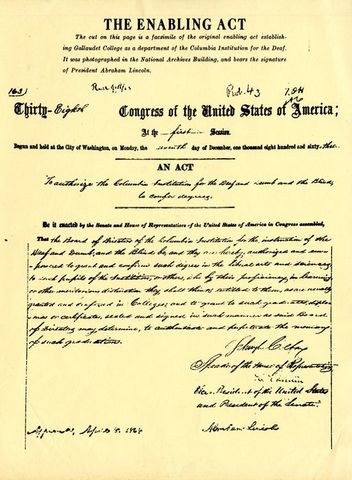 THE ENABLING ACT
The cut on this page is a facsimile of the original enabling act establish-
ing Gallaudet College as a department of the Columbia Institution for the Deaf.
It was photographed in the National Archives Building, and bears the signature
of President Abraham Lincoln.
Pub. 43
Thirty-Eighth Congress of the United States of America;
At the first Session,
Begun and held at the City of Washington, on Monday, the seventh day of December, one thousand eight hundred and sixty-three.
AN ACT
To authorize the Columbia Institution for the Deaf and Dumb and the Blind
to confer degrees.
Be it enacted by the Senate and House of Representatives of the United States of America in Congress assembled,
That the Board of Directors of the Columbia Institution for the instruction of the
Deaf and Dumb, and the Blind be, and they are hereby, authorized and em-
powered to grant and confirm such degrees in the liberal arts and sciences,
to such pupils of the Institution, or others, who by their proficiency in learning
or other meritorious distinction they shall think entitled to them, as are usually
granted and conferred in Colleges; and to grant to such graduates diplo-
mas or certificates, sealed and signed in such manner as said Board
of Directors may determine, to authenticate and perpetuate the memory
of such graduations.
Schuyler Colfax
Speaker of the House of Representatives
Vice President of the United States
and President of the Senate.
Approved, April 8, 1864
Abraham Lincoln